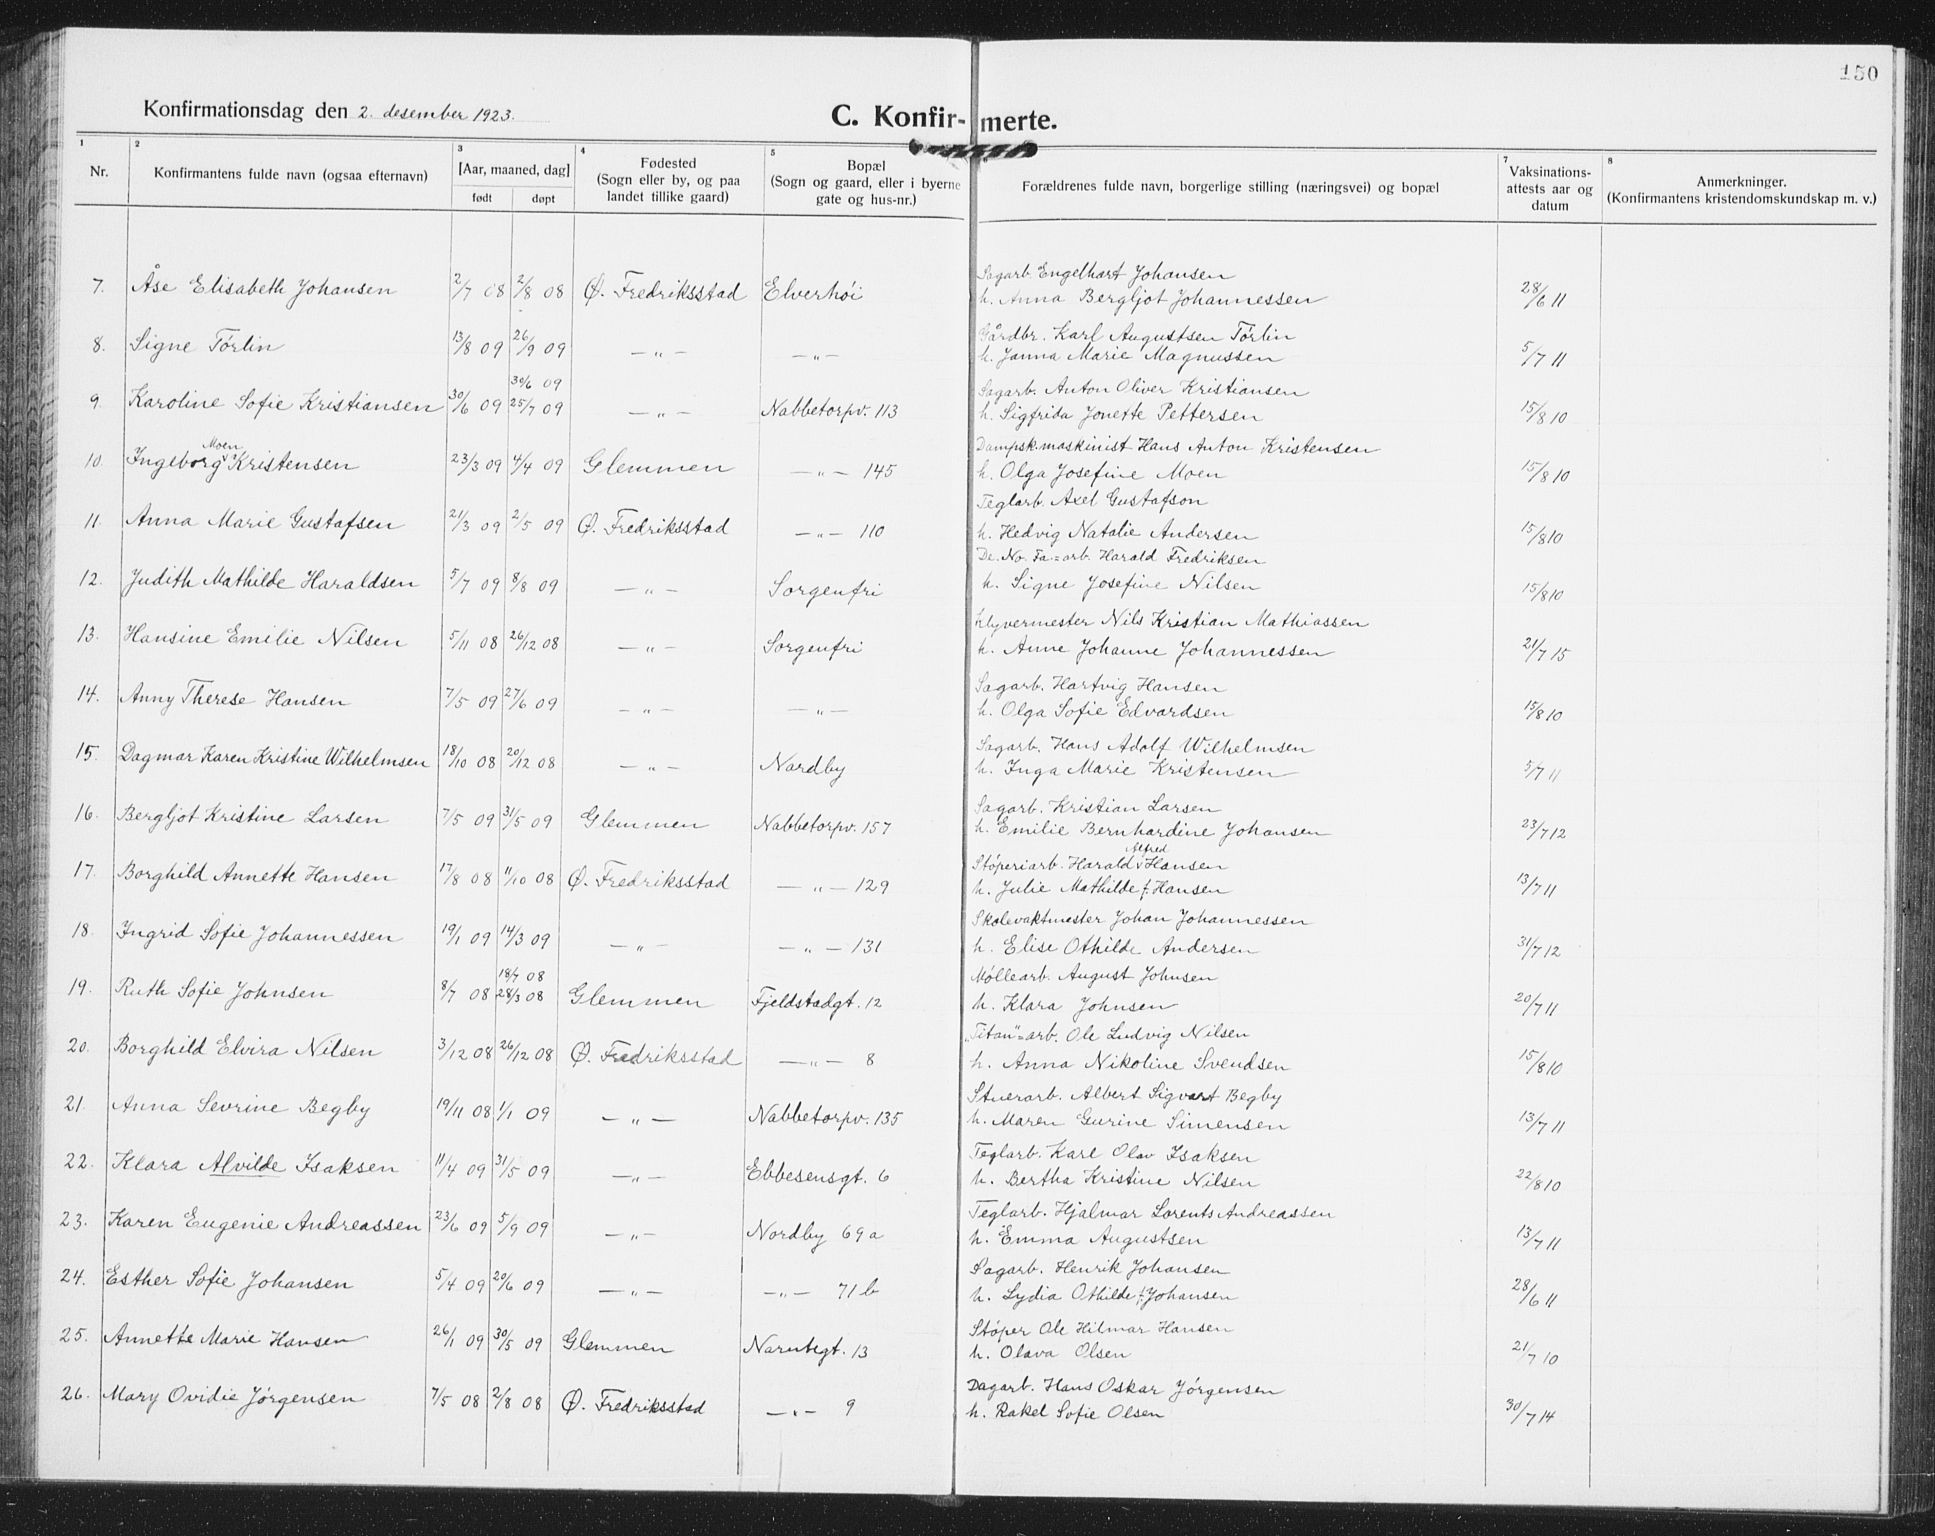 150
Konfirmationsdag den 2. desember 1923.
C. Konfir- merte.
1 2 3 4 5 7 8
Nr. Konfirmantens fulde navn (ogsaa efternavn) [Aar, maaned, dag] født døpt Fødested (Sogn eller by, og paa landet tillike gaard) Bopæl (Sogn og gaard, eller i byerne gate og hus-nr.) Forældrenes fulde navn, borgerlige stilling (næringsvei) og bopæl Vaksinations-attests aar og datum Anmerkninger. (Konfirmantens kristendomskundskap m. v.)
Sagarb. Engelhart Johansen
7. Åse Elisabeth Johansen 2/7 08 2/8 08 Ø. Fredriksstad Elverhöi h. Anna Bergljot Johannessen 28/6 11
Gårdbr. Karl Augustsen Törlin
8. Signe Törlin 13/8 09 26/9 09 — „ — — „ — h. Janna Marie Magnussen 5/7 11
30/6 09 Sagarb. Anton Oliver Kristiansen
9. Karoline Sofie Kristiansen 30/6 09 25/7 09 — „ — Nabbetorpv. 113 h. Sigfrida Jonette Pettersen 15/8 10
Moen Dampsk.maskinist Hans Anton Kristensen
10. Ingeborg Kristensen 23/3 09 4/4 09 Glemmen — „ — 145 h. Olga Josefine Moen 15/8 10
Teglarb. Axel Gustafson
11. Anna Marie Gustafsen 21/3 09 2/5 09 Ø. Fredriksstad — „ — 110 h. Hedvig Natalie Andersen 15/8 10
De. No. Fa.=arb. Harald Fredriksen
12. Judith Mathilde Haraldsen 5/7 09 8/8 09 — „ — Sorgenfri h. Signe Josefine Nilsen 15/8 10
hlyvermester Nils Kristian Mathiassen
13. Hansine Emilie Nilsen 5/11 08 26/12 08 — „ — Sorgenfri h. Anne Johanne Johannessen 21/7 15
Sagarb. Hartvig Hansen
14. Anny Therese Hansen 7/5 09 27/6 09 — „ — — „ — h. Olga Sofie Edvardsen 15/8 10
Sagarb. Hans Adolf Wilhelmsen
15. Dagmar Karen Kristine Wilhelmsen 18/10 08 20/12 08 — „ — Nordby h. Inga Marie Kristensen 5/7 11
Sagarb. Kristian Larsen
16. Bergljot Kristine Larsen 7/5 09 31/5 09 Glemmen Nabbetorpv. 157 h. Emilie Bernhardine Johansen 23/7 12
Alfred
Stöperiarb. Harald Hansen
17. Borghild Annette Hansen 17/8 08 11/10 08 Ø. Fredriksstad — „ — 129 h. Julie Mathilde f. Hansen 13/7 11
Skolevaktmester Johan Johannessen
18. Ingrid Sofie Johannessen 19/1 09 14/3 09 — „ — — „ — 131 h. Elise Othilde Andersen 31/7 12
18/7 08 Möllearb. August Johnsen
19. Ruth Sofie Johnsen 8/7 08 28/3 08 Glemmen Fjeldstadgt. 12 h. Klara Johnsen 20/7 11
„Titan"=arb. Ole Ludvig Nilsen
20. Borghild Elvira Nilsen 3/12 08 26/12 08 Ø. Fredriksstad — „ — 8 h. Anna Nikoline Svendsen 15/8 10
Stuerarb. Albert Sigvart Begby
21. Anna Sevrine Begby 19/11 08 1/1 09 — „ — Nabbetorpv. 135 h. Maren Gurine Simensen 13/7 11
Teglarb. Karl Olav Isaksen
22. Klara Alvilde Isaksen 11/4 09 31/5 09 — „ — Ebbesensgt. 6 h. Bertha Kristine Nilsen 22/8 10
Teglarb. Hjalmar Lorents Andreassen
23. Karen Eugenie Andreassen 23/6 09 5/9 09 — „ — Nordby 69a h. Emma Augustsen 13/7 11
Sagarb. Henrik Johansen
24. Esther Sofie Johansen 5/4 09 20/6 09 — „ — — „ — 71 b h. Lydia Othilde f. Johansen 28/6 11
Stöper Ole Hilmar Hansen
25. Annette Marie Hansen 26/1 09 30/5 09 Glemmen Narutegt. 13 h. Olava Olsen 21/7 10
Dagarb. Hans Oskar Jörgensen
26. Mary Ovidie Jörgensen 7/5 08 2/8 08 Ø. Fredriksstad — „ — 9 h. Rakel Sofie Olsen 30/7 14